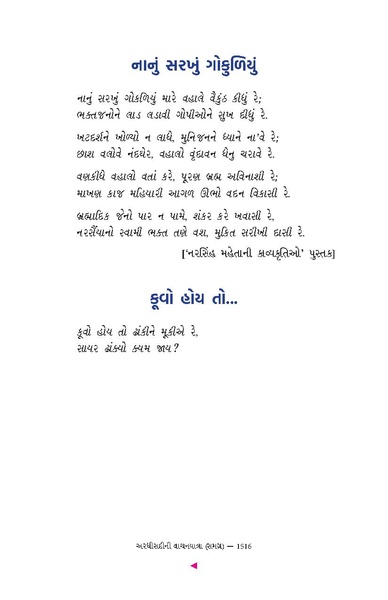 નાનું સરખું ગોકુળિયું
નાનું સરખું ગોકળિયું મારે વહાલે વૈકુંઠ કીધું રે;
ભક્તજનોને લાડ લડાવી ગોપીઓને સુખ દીધું રે.
ખટદર્શને ખોળ્યો ન લાધે, મુનિજનને ધ્યાને ના'વે રે;
છાશ વલોવે નંદઘેર, વહાલો વૃંદાવન ધેનુ ચરાવે રે.
વણકીધે વહાલો વતાં કરે, પૂરણ બ્રહ્મ અવિનાશી રે;
માખણ કાજ મહિયારી આગળ ઊભો વદન વિકાસી રે.
બ્રહ્માદિક જેનો પાર ન પામે, શંકર કરે ખવાસી રે,
નરસૈંયાનો સ્વામી ભક્ત તણે વશ, મુક્તિ સરીખી દાસી રે.
['નરસિંહ મહેતાની કાવ્યકૃતિઓ' પુસ્તક]
કૂવો હોય તો...
કૂવો હોય તો ઢાંકીને મૂકીએ રે,
સાયર ઢાંક્યો ક્યમ જાય ?
અરધીસદીની વાચનયાત્રા (સમગ્ર) — 1516